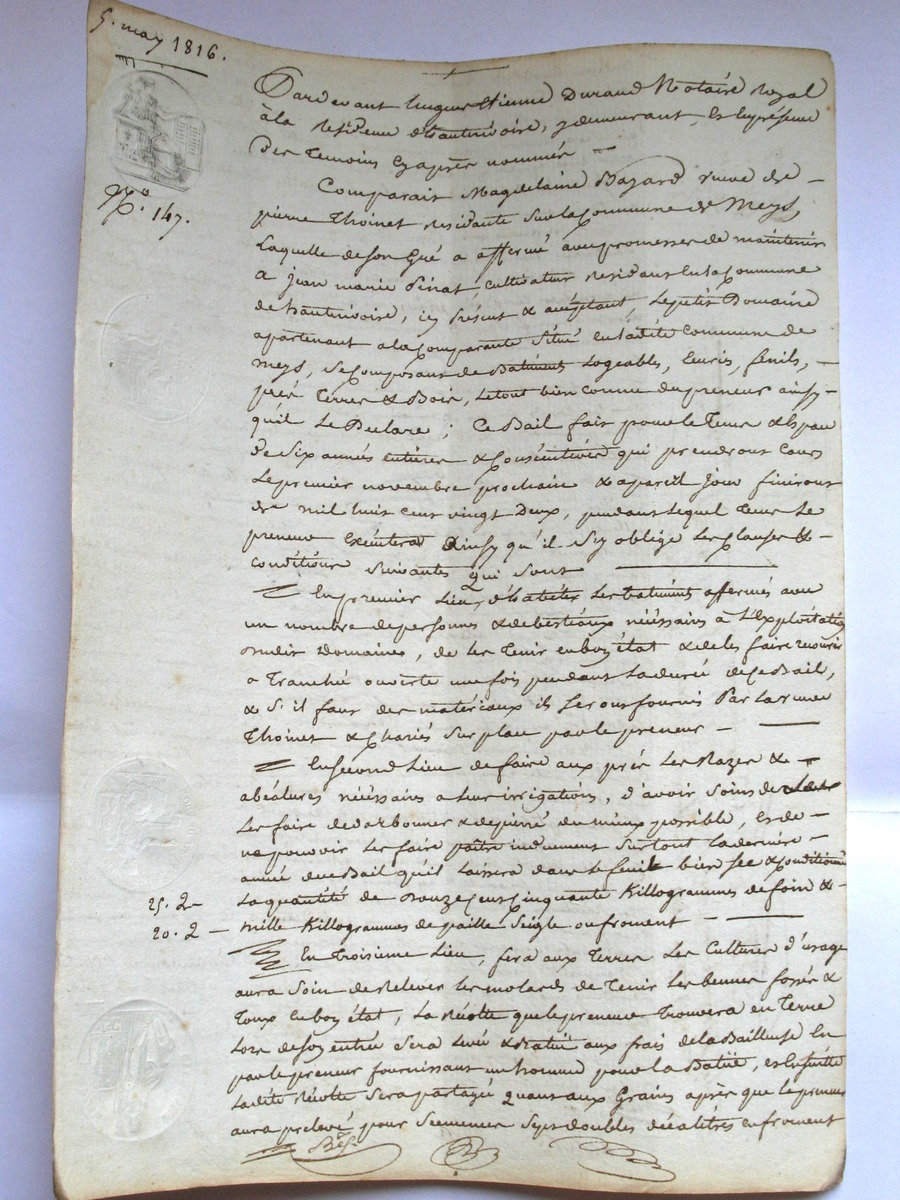 5. may 1816.
Pardevant hugue Etienne Durand Notaire royal
à la residence d'hauterivoire, y demeurant, Et En présence
Des temoins Cy après nommés
N.o 147.
Comparait Magdelaine Bazard veuve de
pierre Thoinet residante sur la Commune de Meys,
Laquelle de son Gré a affermé avec promesses de maintenir
a jean marie Pinat, cultivateur residant En la Commune
de hauterivoire, icy présent & acceptant Le petit Domaine
apartenant a la Comparante situé en ladite commune de
meys, se Composant de Batiments logeables, Ecuris, fenils,
prés Terres & Bois, le tout bien connu du preneur ainsy
qu'il Le Declare; Ce Bail fait pour le Tems & Espace
de six années entieres & Consécutives qui prendront Cours
Le premier novembre prochain & a pareil jour finiront
de mil huit cent vingt Deux, pendant lequel Tems Le
preneur Exécutera Ainsy qu'il s'y oblige Les Clauses &
conditions suivantes qui sont
En premier Lieu, d'habiter Les batiments affermés avec
un nombre de personnes & de bestiaux nécéssaires à L'Exploitation
dudit Domaine, de les Tenir en boy état & de les faire recourir
a Tranché ouverte une fois pendant La durée de Ce Bail,
& S'il faut des matériaux ils Seront fournis Par La veuve
Thoinet & Chariés Sur place par le preneur
En second Lieu de faire aux prés Les Razes &
abéalures nécéssaires a leur irrigations, d'avoir Soins de
Les faire & depierré du mieux possible, Et de
ne pouvoir Les faire paître induement Surtout La derniere
année du Bail qu'il laissera dans le fenil bien sec & Conditionné
25. 2 La quantité de Douze Cent Cinquante Killogrammes de foin &
20. 2 mille Killogrammes de paille Seigle ou froment
En Troisieme Lieu, fera aux Terres Les Cultures d'usage
aura Soin de Relever Les molards de Tenir Les bennes fossés &
Tous En boy état, La Récolte que le preneur Trouvera en Terre
Lors de son entrée Sera Levée & Batuë aux frais de la Bailleuse En
par le preneur fournissant un homme pour la Batuë, et Ensuitte
Ladite Récolte Sera partagée quant aux Grains après que le preneur
aura prelevé pour Semences Sept doubles décalitres en froment